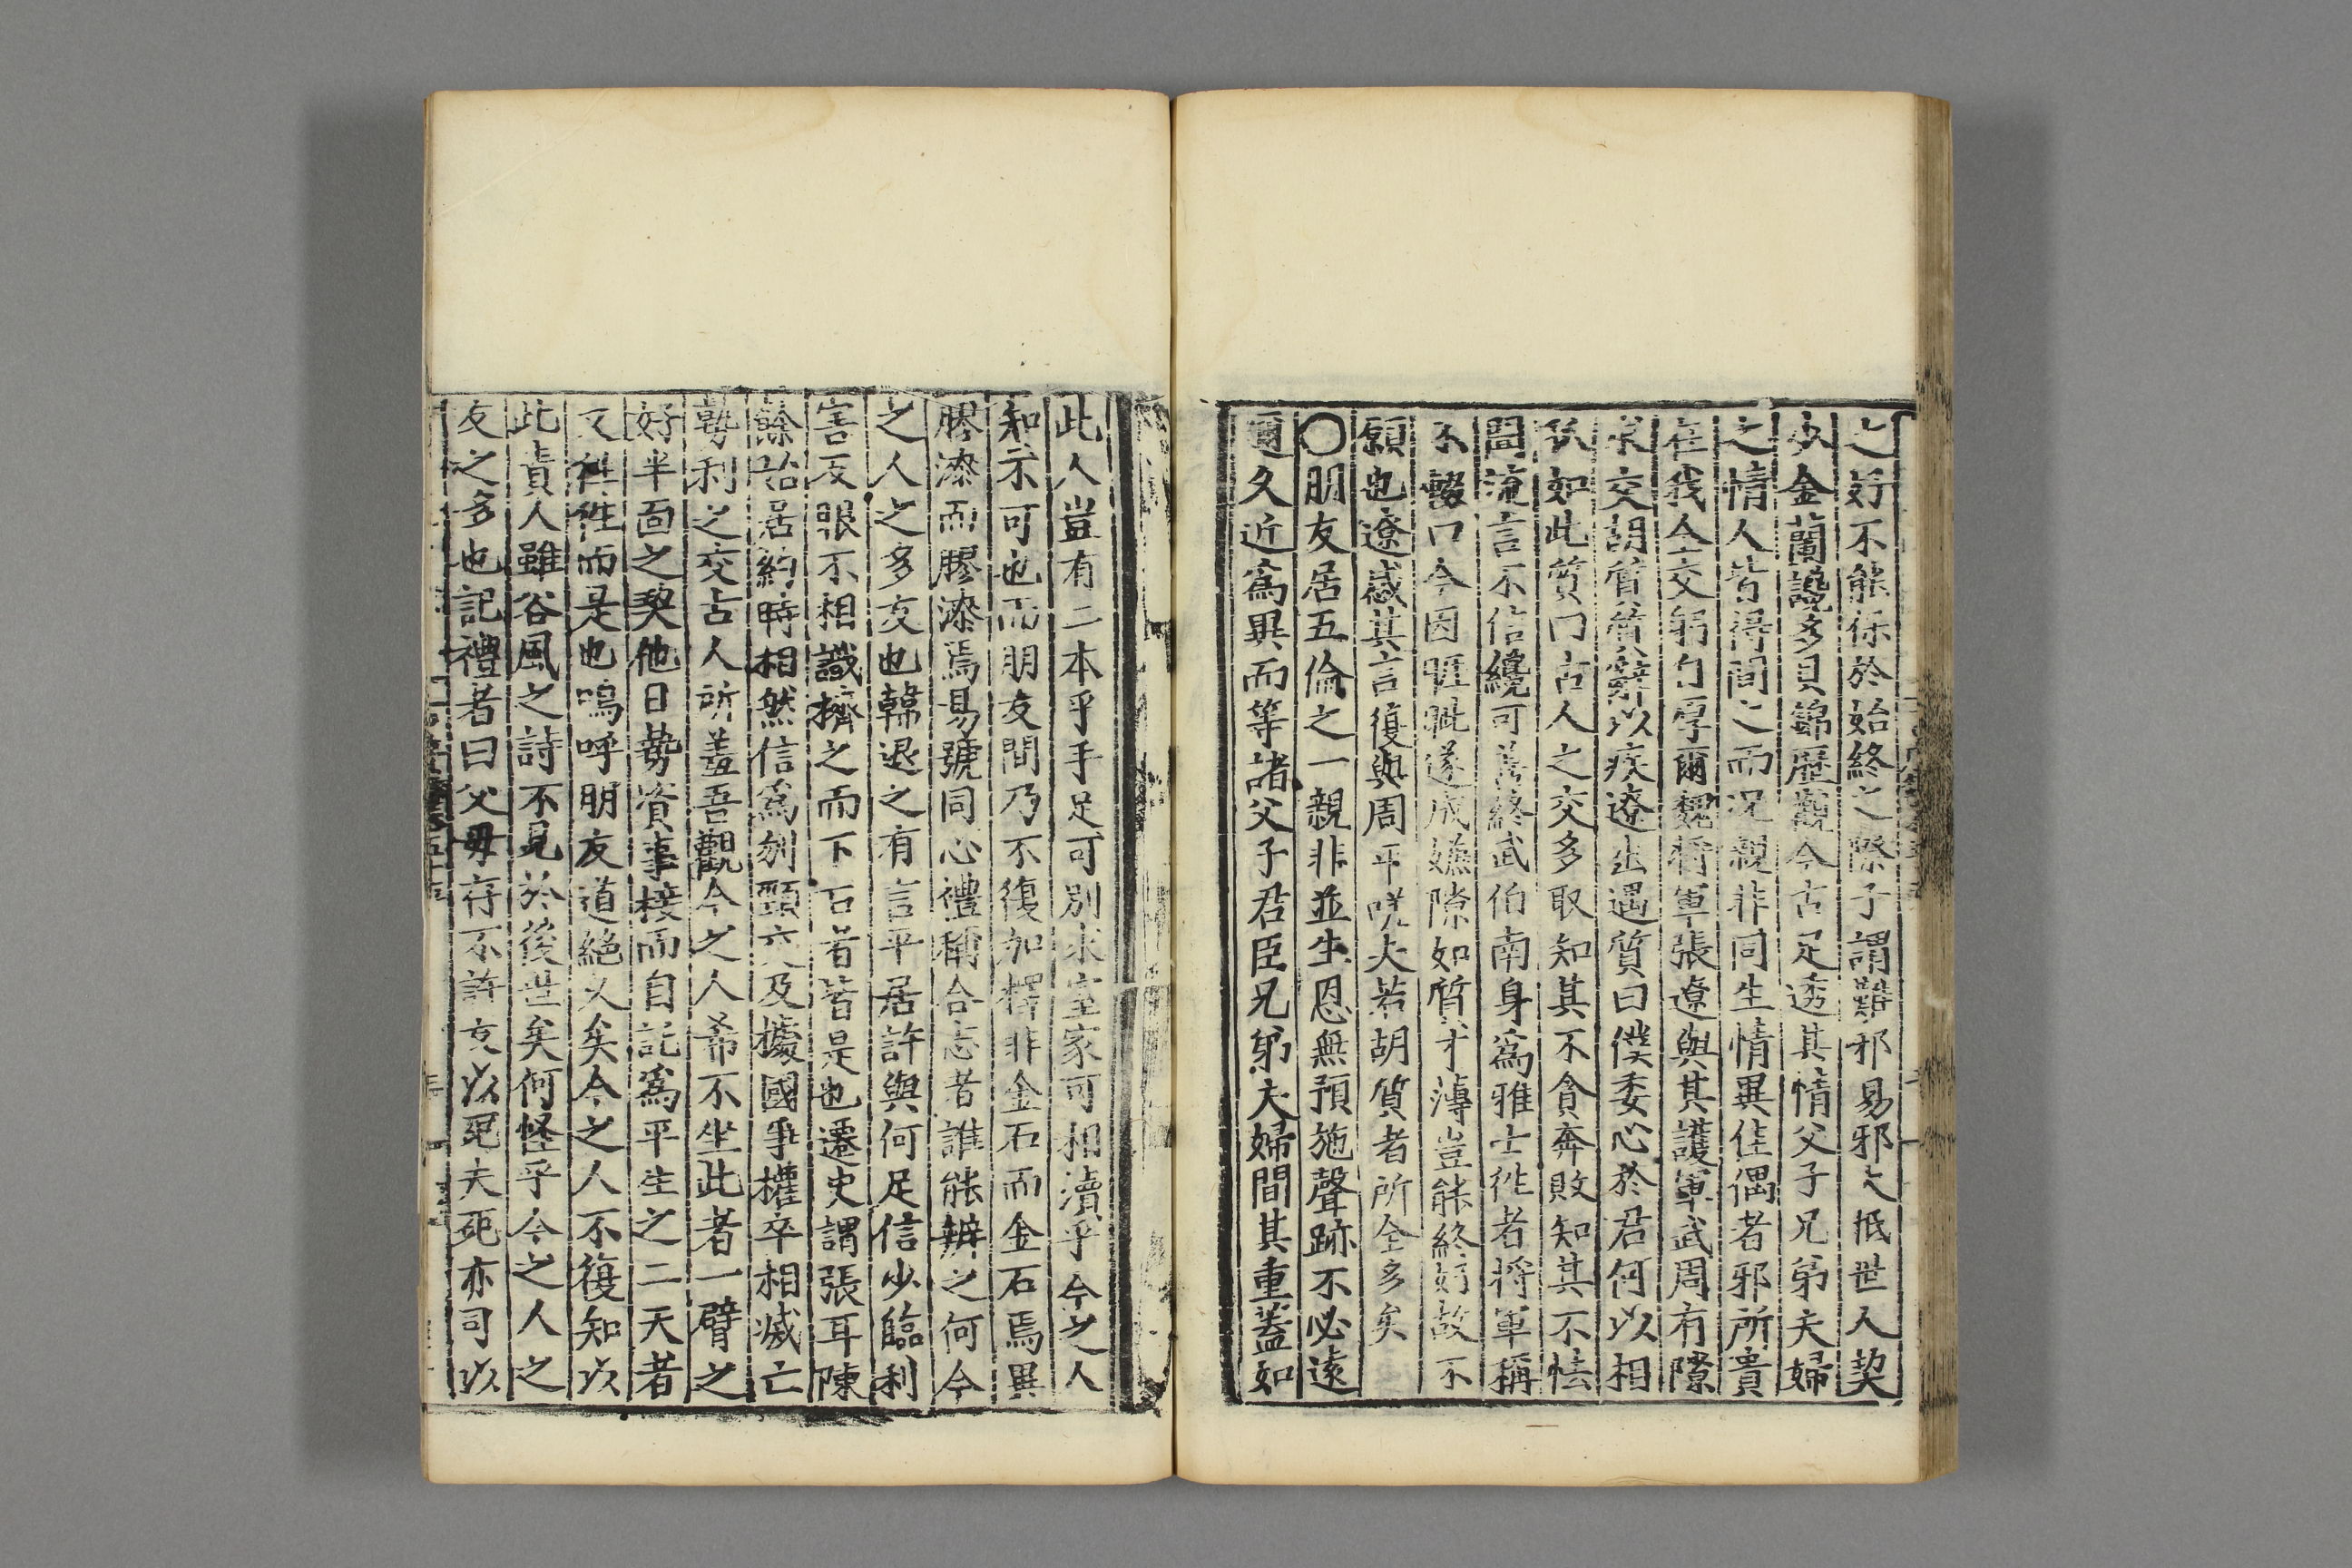 之好不能保於始終之際子謂難邪易邪大抵世人契
少金蘭讒多貝錦歷觀今古足透其情父子兄弟夫婦
之情人皆得間之而况親非同生情異佳偶者邪所貴
在我今交躬自厚爾魏將軍張遼與其護軍武周有隙
求交胡質質辭以疾遼出遇質曰僕委心於君何以相
孤如此質曰古人之交多取知其不貪奔敗知其不怯
聞流言不信纔可善終武伯南身爲雅士徃者將軍稱
不輟口今因睚眦遂成嫌隙如質才薄豈能終好故不
願也遼感其言復與周平嗟夫若胡質者所全多矣
〇朋友居五倫之一親非並生恩無預施聲跡不必遠
邇久近爲異而等諸父子君臣兄弟夫婦間其重蓋如
此人豈有二本乎手足可別求室家可相瀆乎今之人
知示可也而朋友間乃不復加擇非金石而金石焉異
膠漆而膠漆焉易號同心禮稱合志者誰能辨之何今
之人之多友也韓退之有言平居許與何足信少臨利
害反眼不相識擠之而下石者皆是也遷史謂張耳陳
餘始居約時相然信爲刎頸交及據國爭權卒相滅亡
勢利之交古人所羞吾觀今之人希不坐此者一臂之
好半面之契他日勢資事接而自託爲平生之二天者
又徃徃而是也嗚呼朋友道絕久矣今之人不復知以
此責人雖谷風之詩不見於後世矣何怪乎今之人之
友之多也記禮者曰父毋存不許友以死夫死亦司以